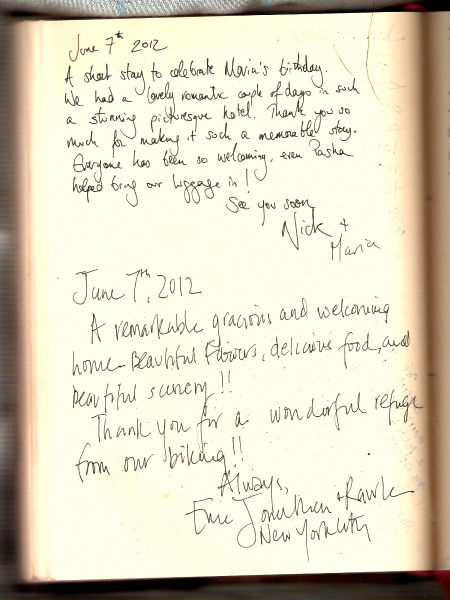 June 7th 2012
A short stay to celebrate Maria's birthday.
We had a lovely romantic couple of days in such
a stunning picturesque hotel. Thank you so
much for making it such a memorable stay.
Everyone has been so welcoming, even Pasha
helped bring our luggage in!
See you soon,
Nick +
Maria
June 7th, 2012
A remarkable gracious and welcoming
home. Beautiful flowers, delicious food, and
beautiful scenery!!
Thank you for a wonderful refuge
from our biking!!
Always,
Jonathan +
New York City